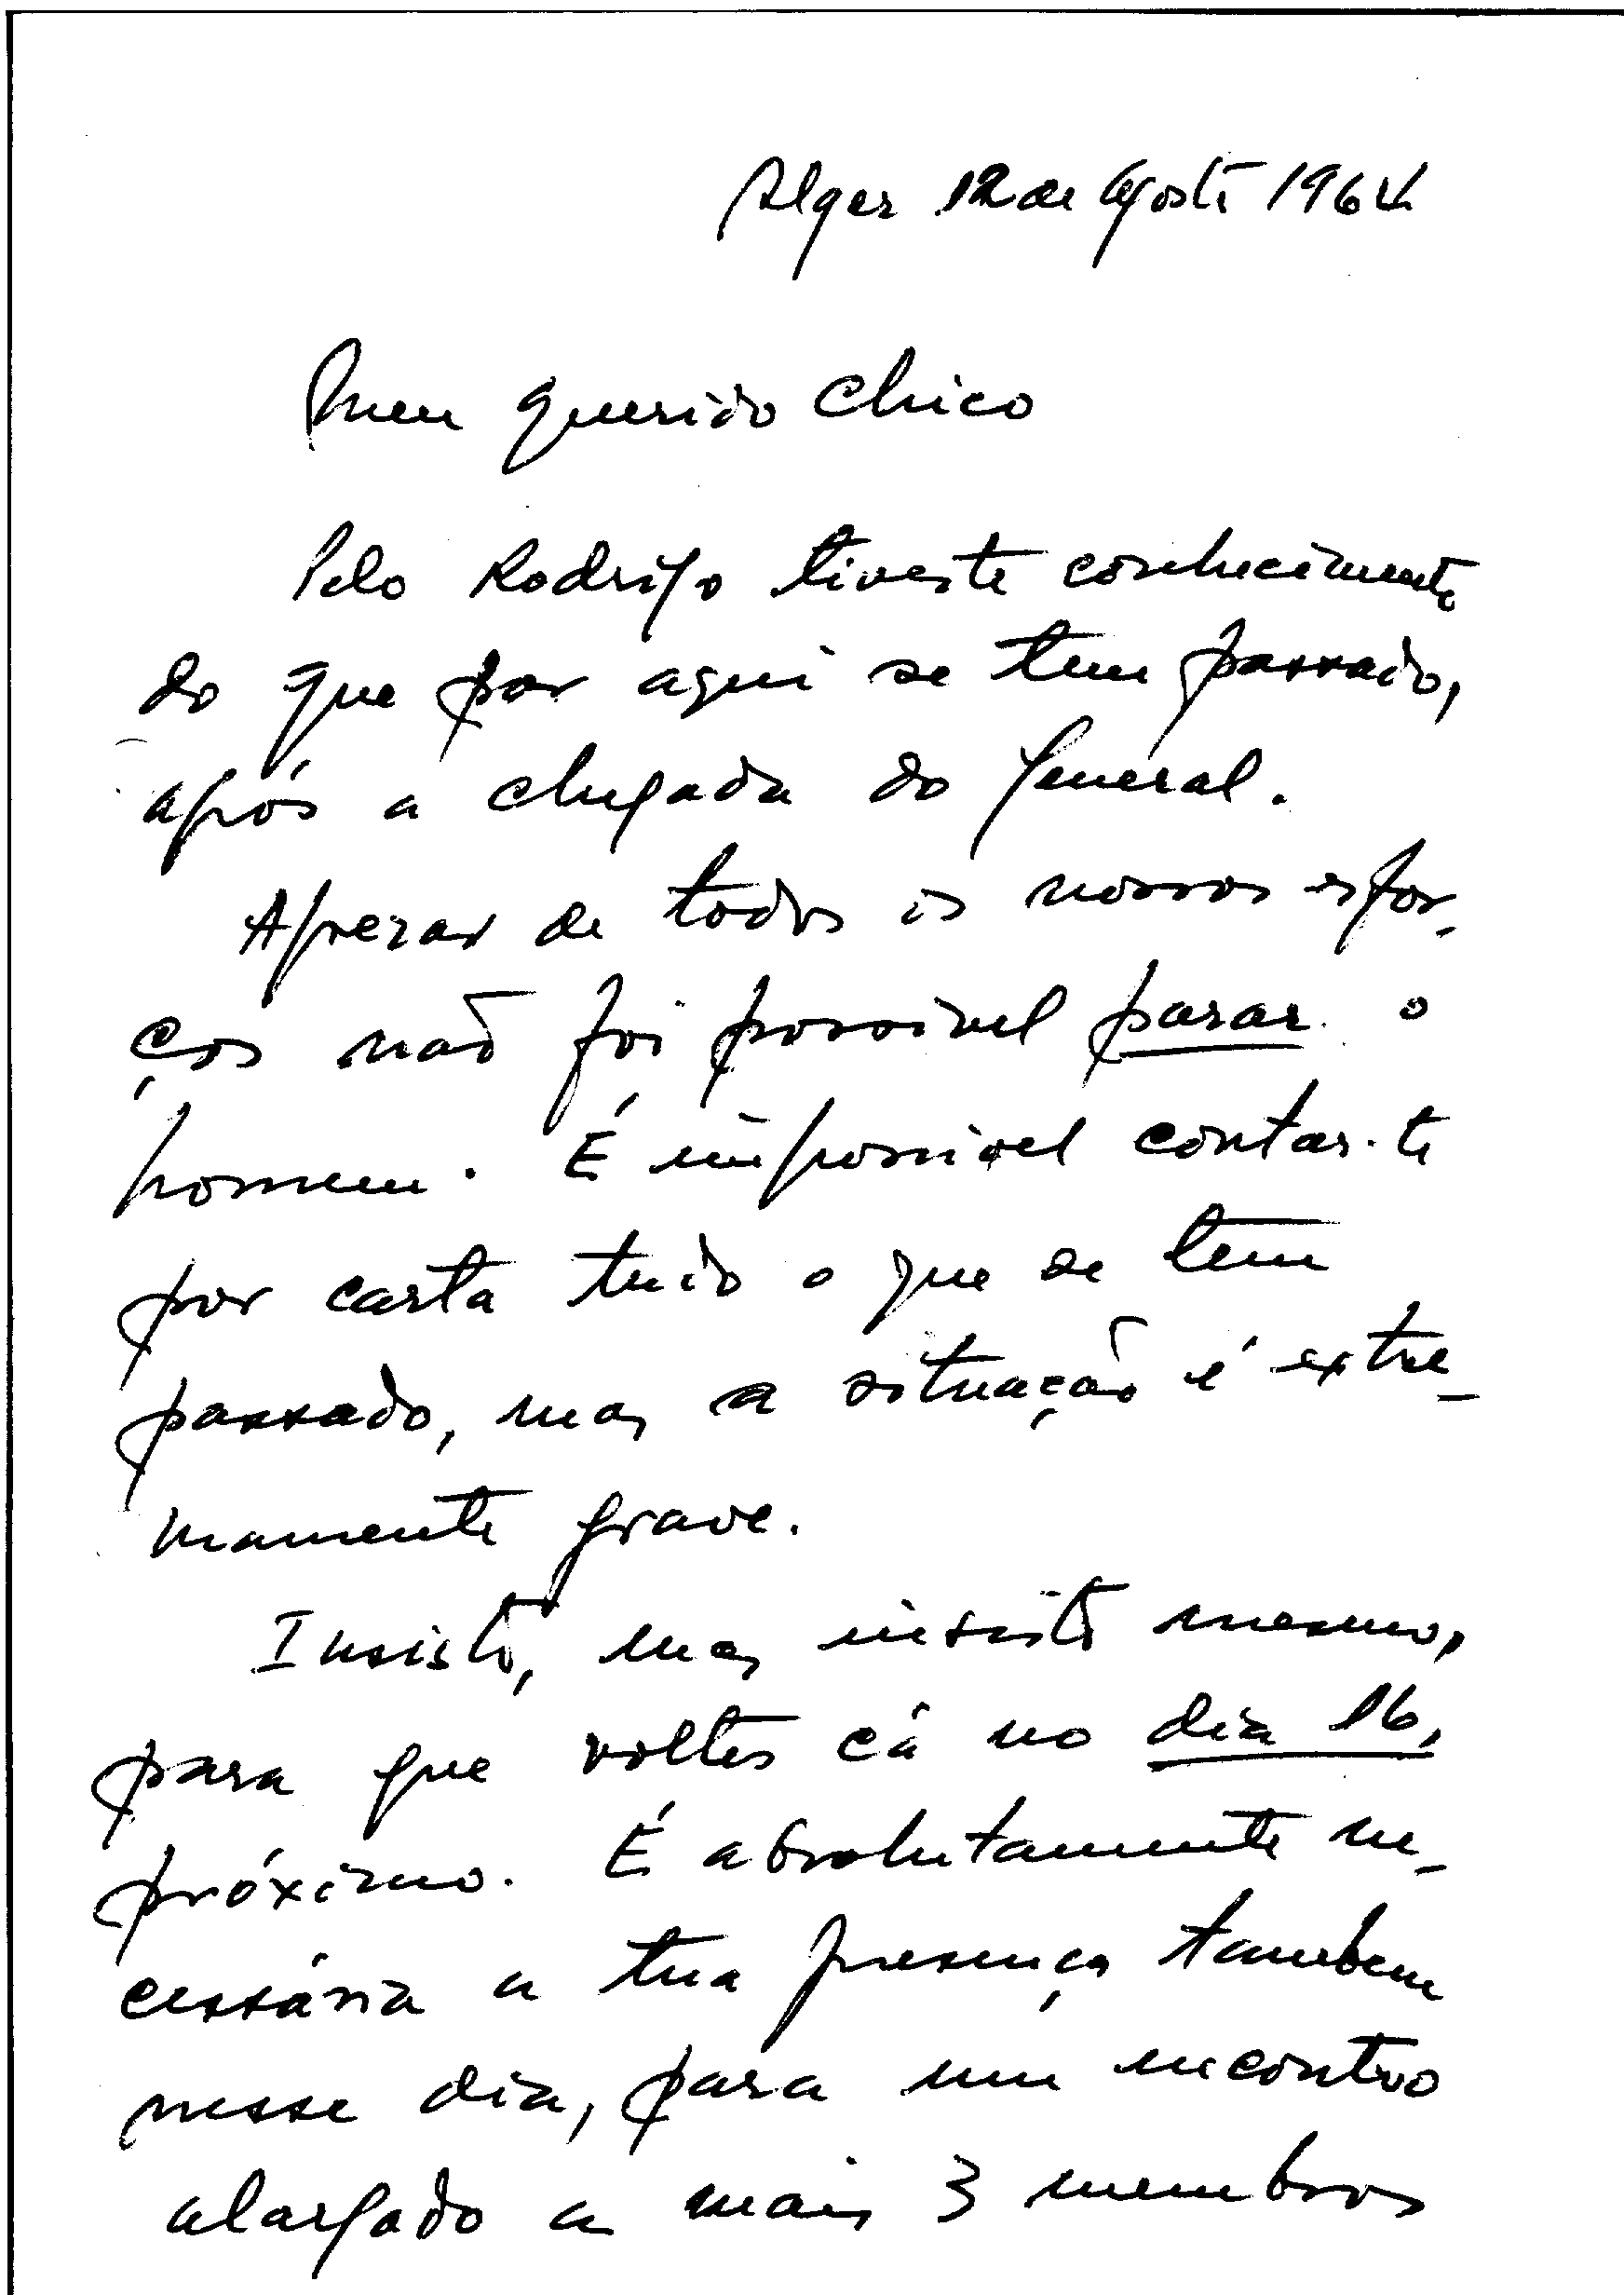 Alger 12 de Agosto 1964
Meu querido Chico
Pelo Rodrigo tiveste conhecimento
do que por aqui se tem passado,
após a chegada do General.
Apezar de todos os nossos esfor-
ços não foi possivel parar o
homem. É impossivel contar-te
por carta tudo o que se tem
passado, mas a situação é extre-
mamente grave.
Insisto, mas insisto mesmo,
para que voltes cá no dia 16,
próximo. É absolutamente ne-
cessária a tua presença tambem
nesse dia, para um encontro
alargado a mais 3 membros